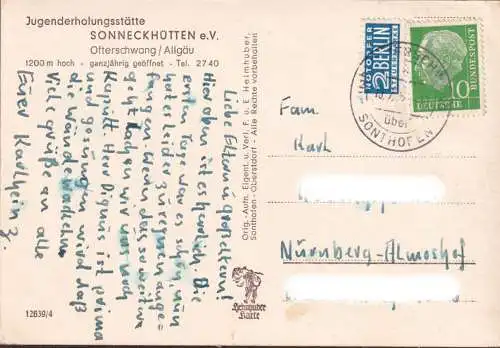 Jugenderholungsstätte
SONNECKHÜTTEN e.V.
Ofterschwang / Allgäu
1200 m hoch - ganzjährig geöffnet - Tel. 2740
Liebe Eltern u. Großeltern!
Hier oben ist es herrlich. Die
ersten Tage war es schön, nun
hat es leider zu regnen ange-
fangen. Wenn das so weiter
geht haben wir uns noch
Kaputt. Herr Dignus ist prima
und gesungen wird daß
die Wände wackeln.
Viele Grüße an alle
Euer Karlheinz.
Orig.-Aufn. Eigent. u. Verl. F. u. E. Heimhuber,
Sonthofen - Oberstdorf - Alle Rechte vorbehalten
12639/4
Heimhuber
Karte
NOTOPFER
2 BERLIN
STEUERMARKE
DEUTSCHE
BUNDESPOST
10
über
SONTHOFEN
Fam.
Karl
Nürnberg-Almoshof